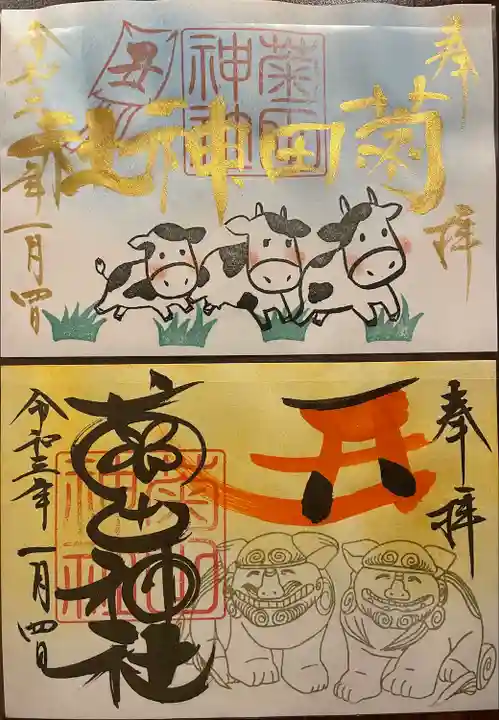 奉拝
菊田神社
丑
菊田神社
令和三年一月四日
奉拝
神社
令和三年一月四日